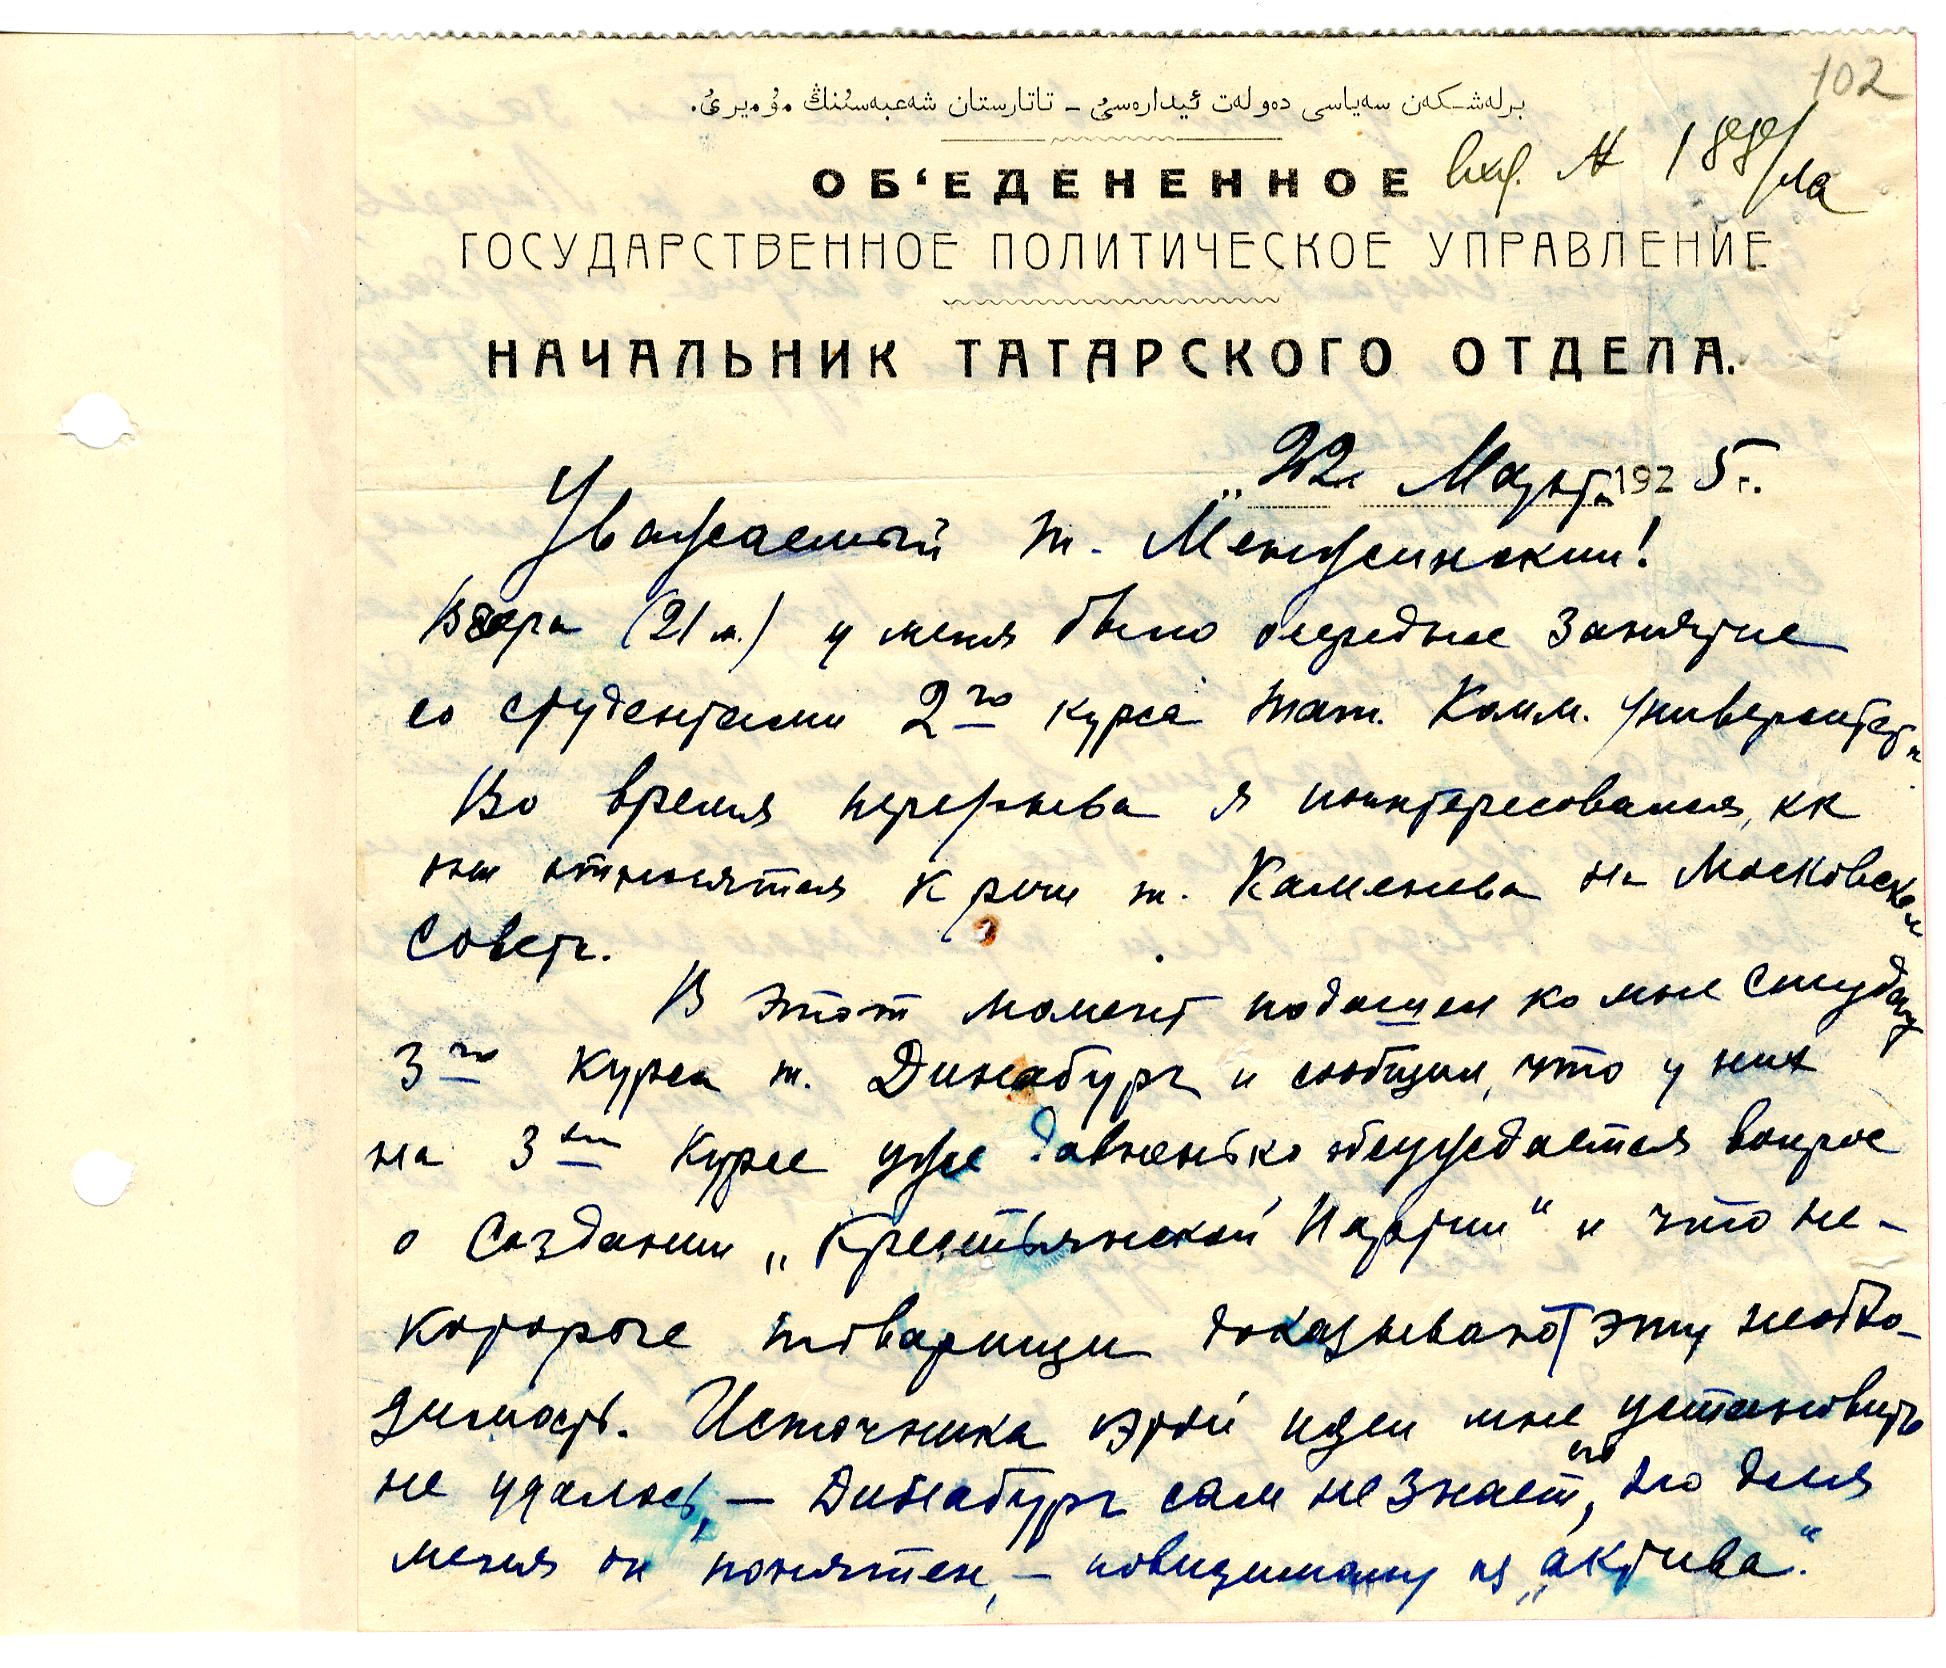 102
برلەشكەن سەیاسی دەولەت ئیدارەسی - تاتارستان شەعبەسنڭ مۇدیری.
ОБ‘ЕДЕНЕННОЕ
вхд. № 188/ла
ГОСУДАРСТВЕННОЕ ПОЛИТИЧЕСКОЕ УПРАВЛЕНИЕ
НАЧАЛЬНИК ТАТАРСКОГО ОТДЕЛА.
„22“ Марта 1925 г.
Уважаемый т. Менжинский!
Вчера (21 м.) у меня было очередное занятие
со студентами 2го курса Тат. Комм. Университета
Во время перерыва я поинтересовался, кк
они относятся к речи т. Каменева на Московском
Совете.
В этот момент подошел ко мне студент
3го курса т. Динабург и сообщил, что у них
на 3ем курсе уже давненько обсуждается вопрос
о создании „Крестьянской Партии“ и что не-
которые товарищи доказывают эту необхо-
димость. Источника этой идеи мне установить
не удалось, – Динабург сам не знает его, но для
меня он понятен, – повидимому из „актива“.